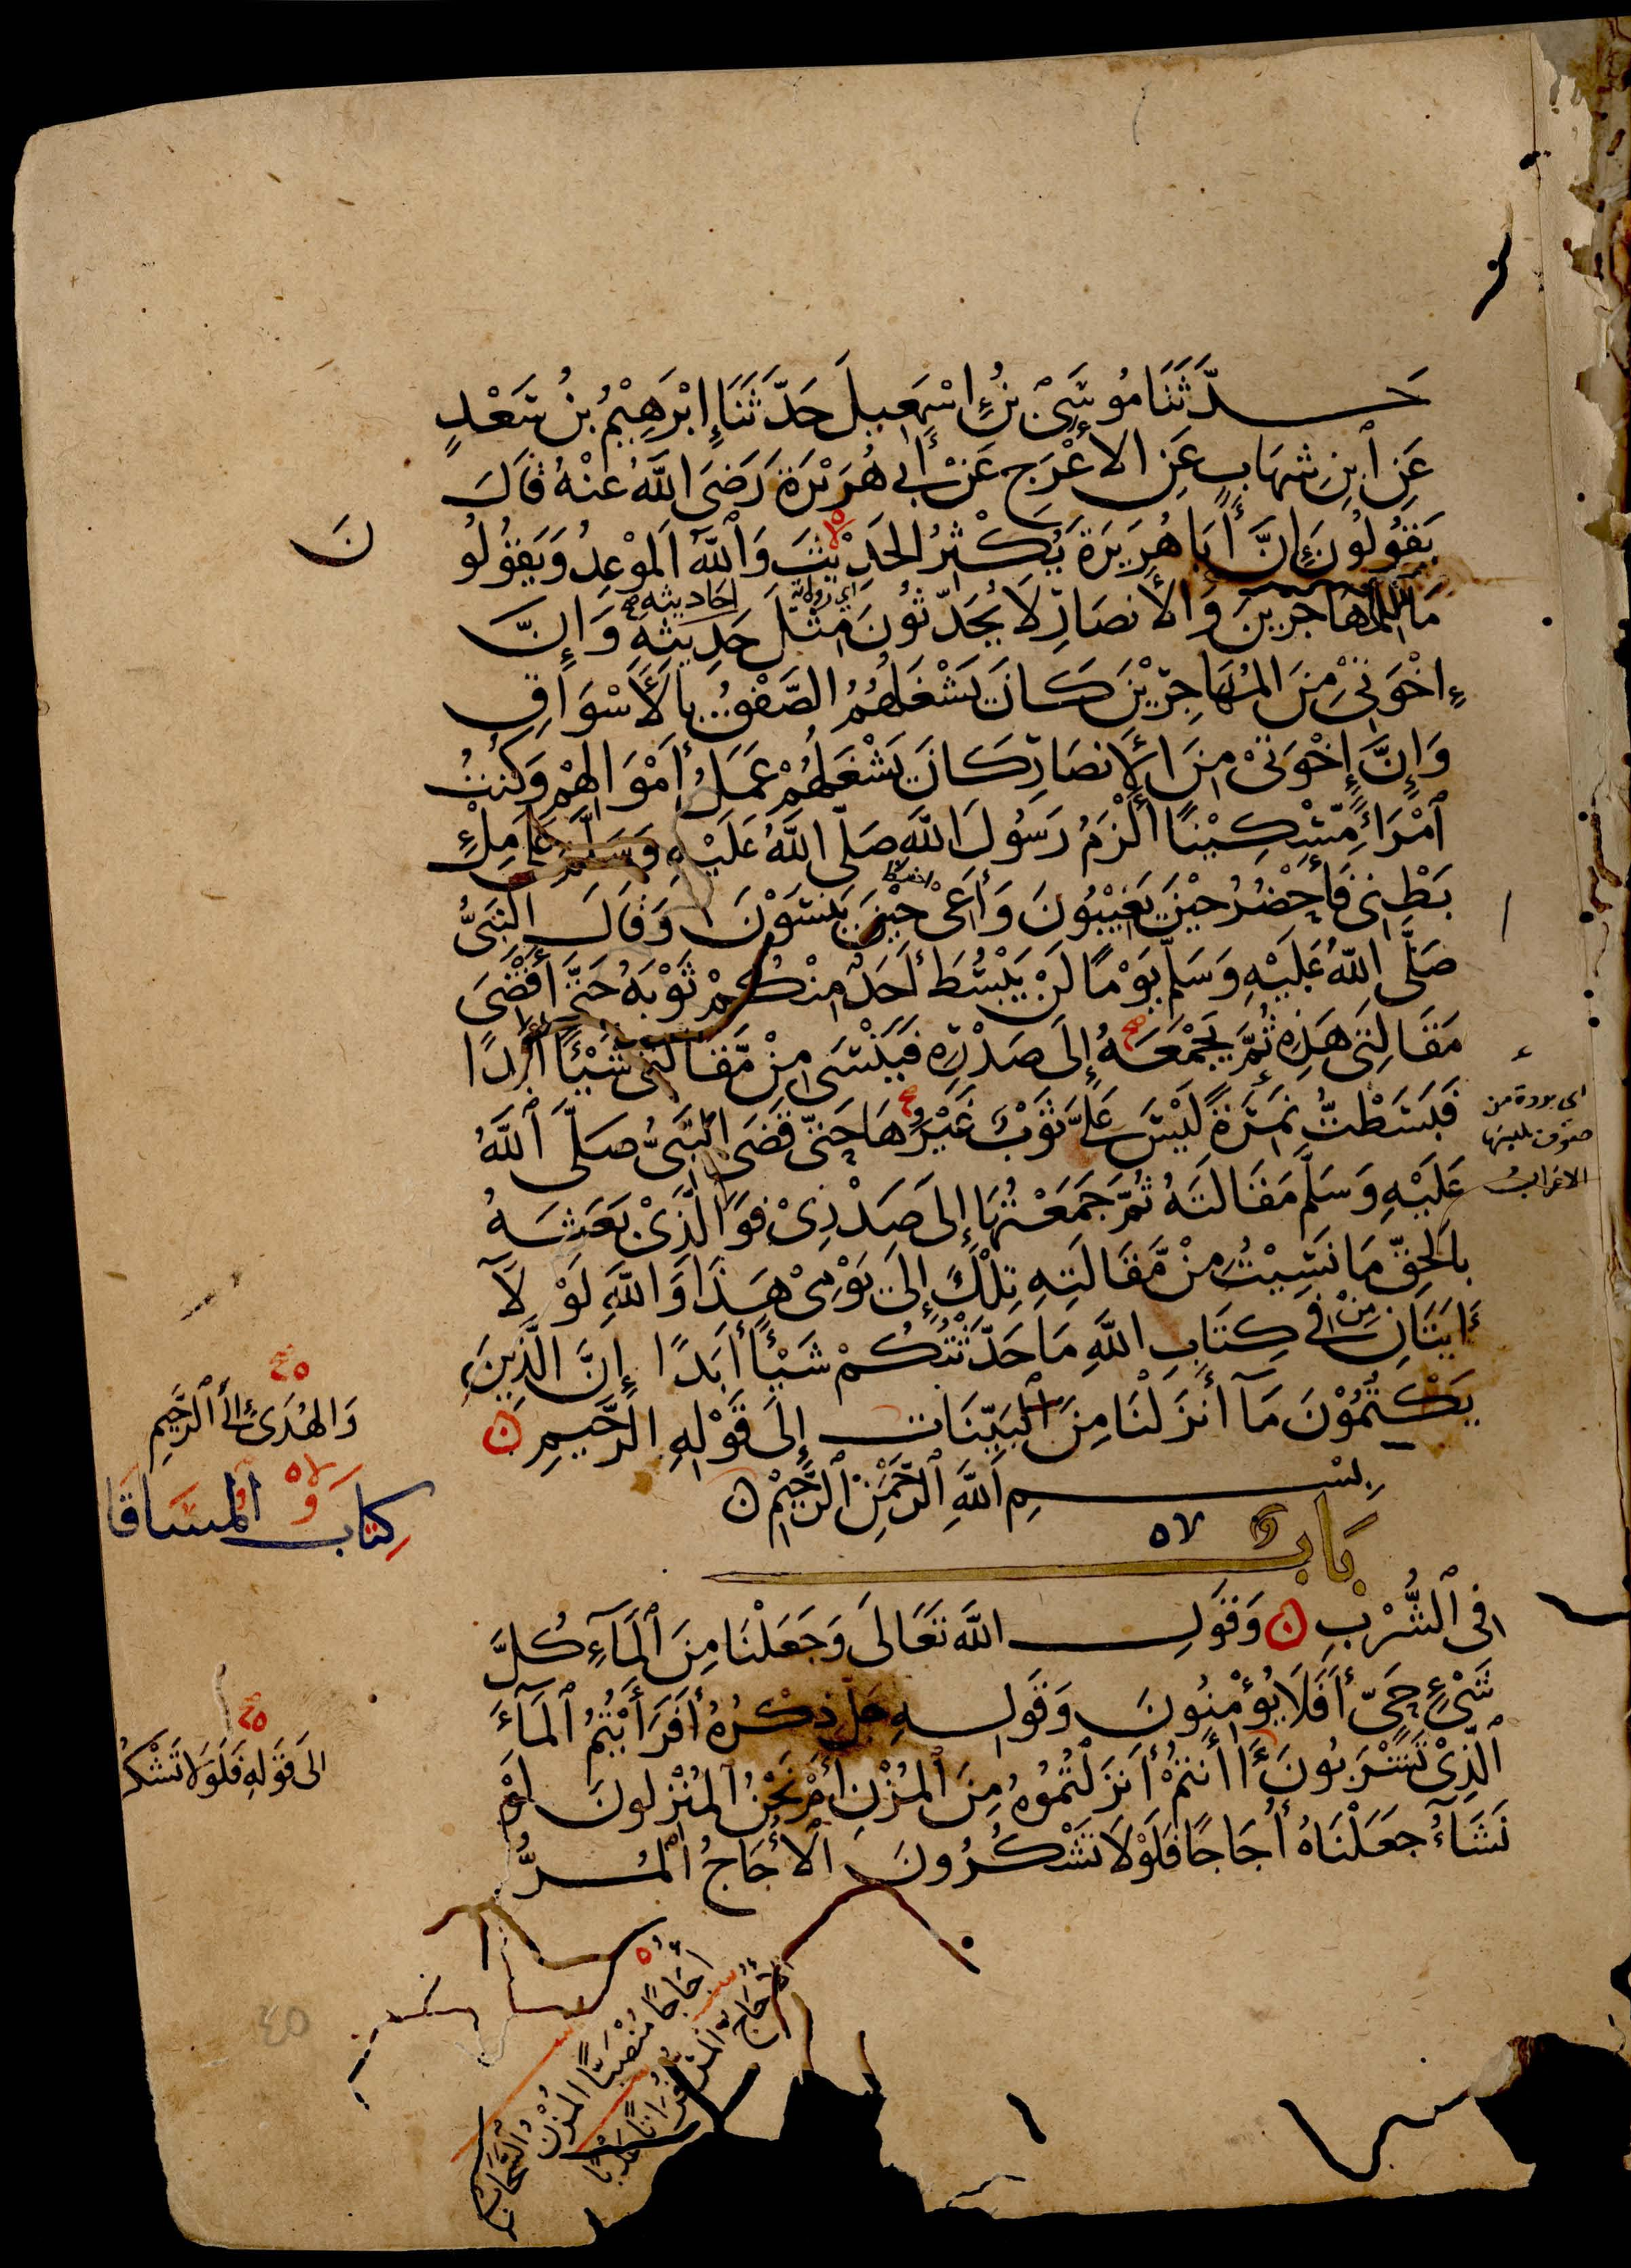 حَدَّثَنَا مُوسَى بْنُ إِسْمٰعِيلَ حَدَّثَنَا إِبْرٰهِيْمُ بْنُ سَعْدٍ
عَنِ ٱبْنِ شِهَابٍ عَنِ الأَعْرَجِ عَنْ أَبِي هُرَيْرَةَ رَضِيَ اللَّهُ عَنْهُ قَالَ
يَقُولُونَ إِنَّ أَبَا هُرَيْرَةَ يُكْثِرُ الحَدِيْثَ وَٱللَّهُ المَوْعِدُ وَيَقُولُو
نَ
مَا لِلْمُهَاجِرِينَ وَالأَنصَارِ لاَ يُحَدِّثُونَ مِثْلَ حَدِيثِهِ وَإِنَّ
اي رواية
احَاديثه
إِخْوَتِيْ مِنَ المُهَاجِرِيْنَ كَانَ يَشْغَلُهُمُ الصَّفْقُ بِالأَسْوَاقِ
وَإِنَّ إِخْوَتِيْ مِنَ الأَنصَارِ كَانَ يَشْغَلُهُمْ عَمَلُ أَمْوَالِهِمْ وَكُنتُ
ٱمْرَأً مِّسْكِيْنًا أَلْزَمُ رَسُولَ اللَّهِ صَلَّى اللَّهُ عَلَيْهِ وَسَلَّمَ عَلَى مِلْءِ
بَطْنِي فَأَحْضُرُ حِيْنَ يَغِيْبُونَ وَأَعِي حِيْنَ يَنسَوْنَ وَقَالَ النَّبِيُّ
احفظ
صَلَّى اللَّهُ عَلَيْهِ وَسَلَّمَ يَوْمًا لَنْ يَبْسُطَ أَحَدٌ مِنْكُمْ ثَوْبَهُ حَتَّى أَقْضِيَ
مَقَالَتِي هَذِهِ ثُمَّ يَجْمَعَهُ إِلَى صَدْرِهِ فَيَنْسَى مِنْ مَّقَالَتِي شَيْئًا أَبَدًا
فَبَسَطْتُّ نَمِرَةً لَيْسَ عَلَيَّ ثَوْبٌ غَيْرُهَا حَتَّى قَضَى النَّبِيُّ صَلَّى ٱللَّهُ
اى بردة من
صوف يلبسها
الاعراب
عَلَيْهِ وَسَلَّمَ مَقَالَتَهُ ثُمَّ جَمَعْتُهَا إِلَى صَدْرِىْ فَوَالَّذِىْ بَعَثَهُ
بِالحَقِّ مَا نَسِيْتُ مِنْ مَّقَالَتِهِ تِلْكَ إِلَى يَوْمِىْ هَذَا وَاللَّهِ لَوْ لاَ
ءَايَتَانِ مِنْ فِي كِتَابِ اللَّهِ مَا حَدَّثْتُكُمْ شَيْئًا أَبَدًا إِنَّ الَّذِينَ
يَكْتُمُوْنَ مَآ أَنزَلْنَا مِنَ ٱلْبَيِّنَاتِ إِلَى قَوْلِهِ الرَّحِيمِ ن
وَالهُدَى إِلَى ٱلرَّحِيمِ
بِسْمِ اللَّهِ ٱلرَّحْمَٰنِ ٱلرَّحِيْمِ ن
كِتَاب المساقا
بَاب
فِي ٱلشُّرْبِ ن وَقَوْلِ اللَّهِ تَعَالَى وَجَعَلْنَا مِنَ ٱلْمَآءِ كُلَّ
شَيْءٍ حَيٍّ أَفَلَا يُؤْمِنُونَ وَقَوْلِهِ جَلَّ ذِكْرُهُ أَفَرَأَيْتُمُ ٱلْمَآءَ
ٱلَّذِيْ تَشْرَبُونَ ءَأَنتُمْ أَنزَلْتُمُوْهُ مِنَ ٱلْمُزْنِ أَمْ نَحْنُ ٱلْمُنْزِلُونَ لَوْ
الَى قَوْلِهِ فَلَوْلَا تَشْكُ
نَشَآءُ جَعَلْنَاهُ أُجَاجًا فَلَوْلَا تَشْكُرُونَ الأُجَاجُ ٱلْمُرُّ
أُجَاجًا مُنْصَبًّا المُزْنُ السَّحَابُ
الأُجَاجُ المُرُّ فُرَاتًا عَذْبًا
٤٥